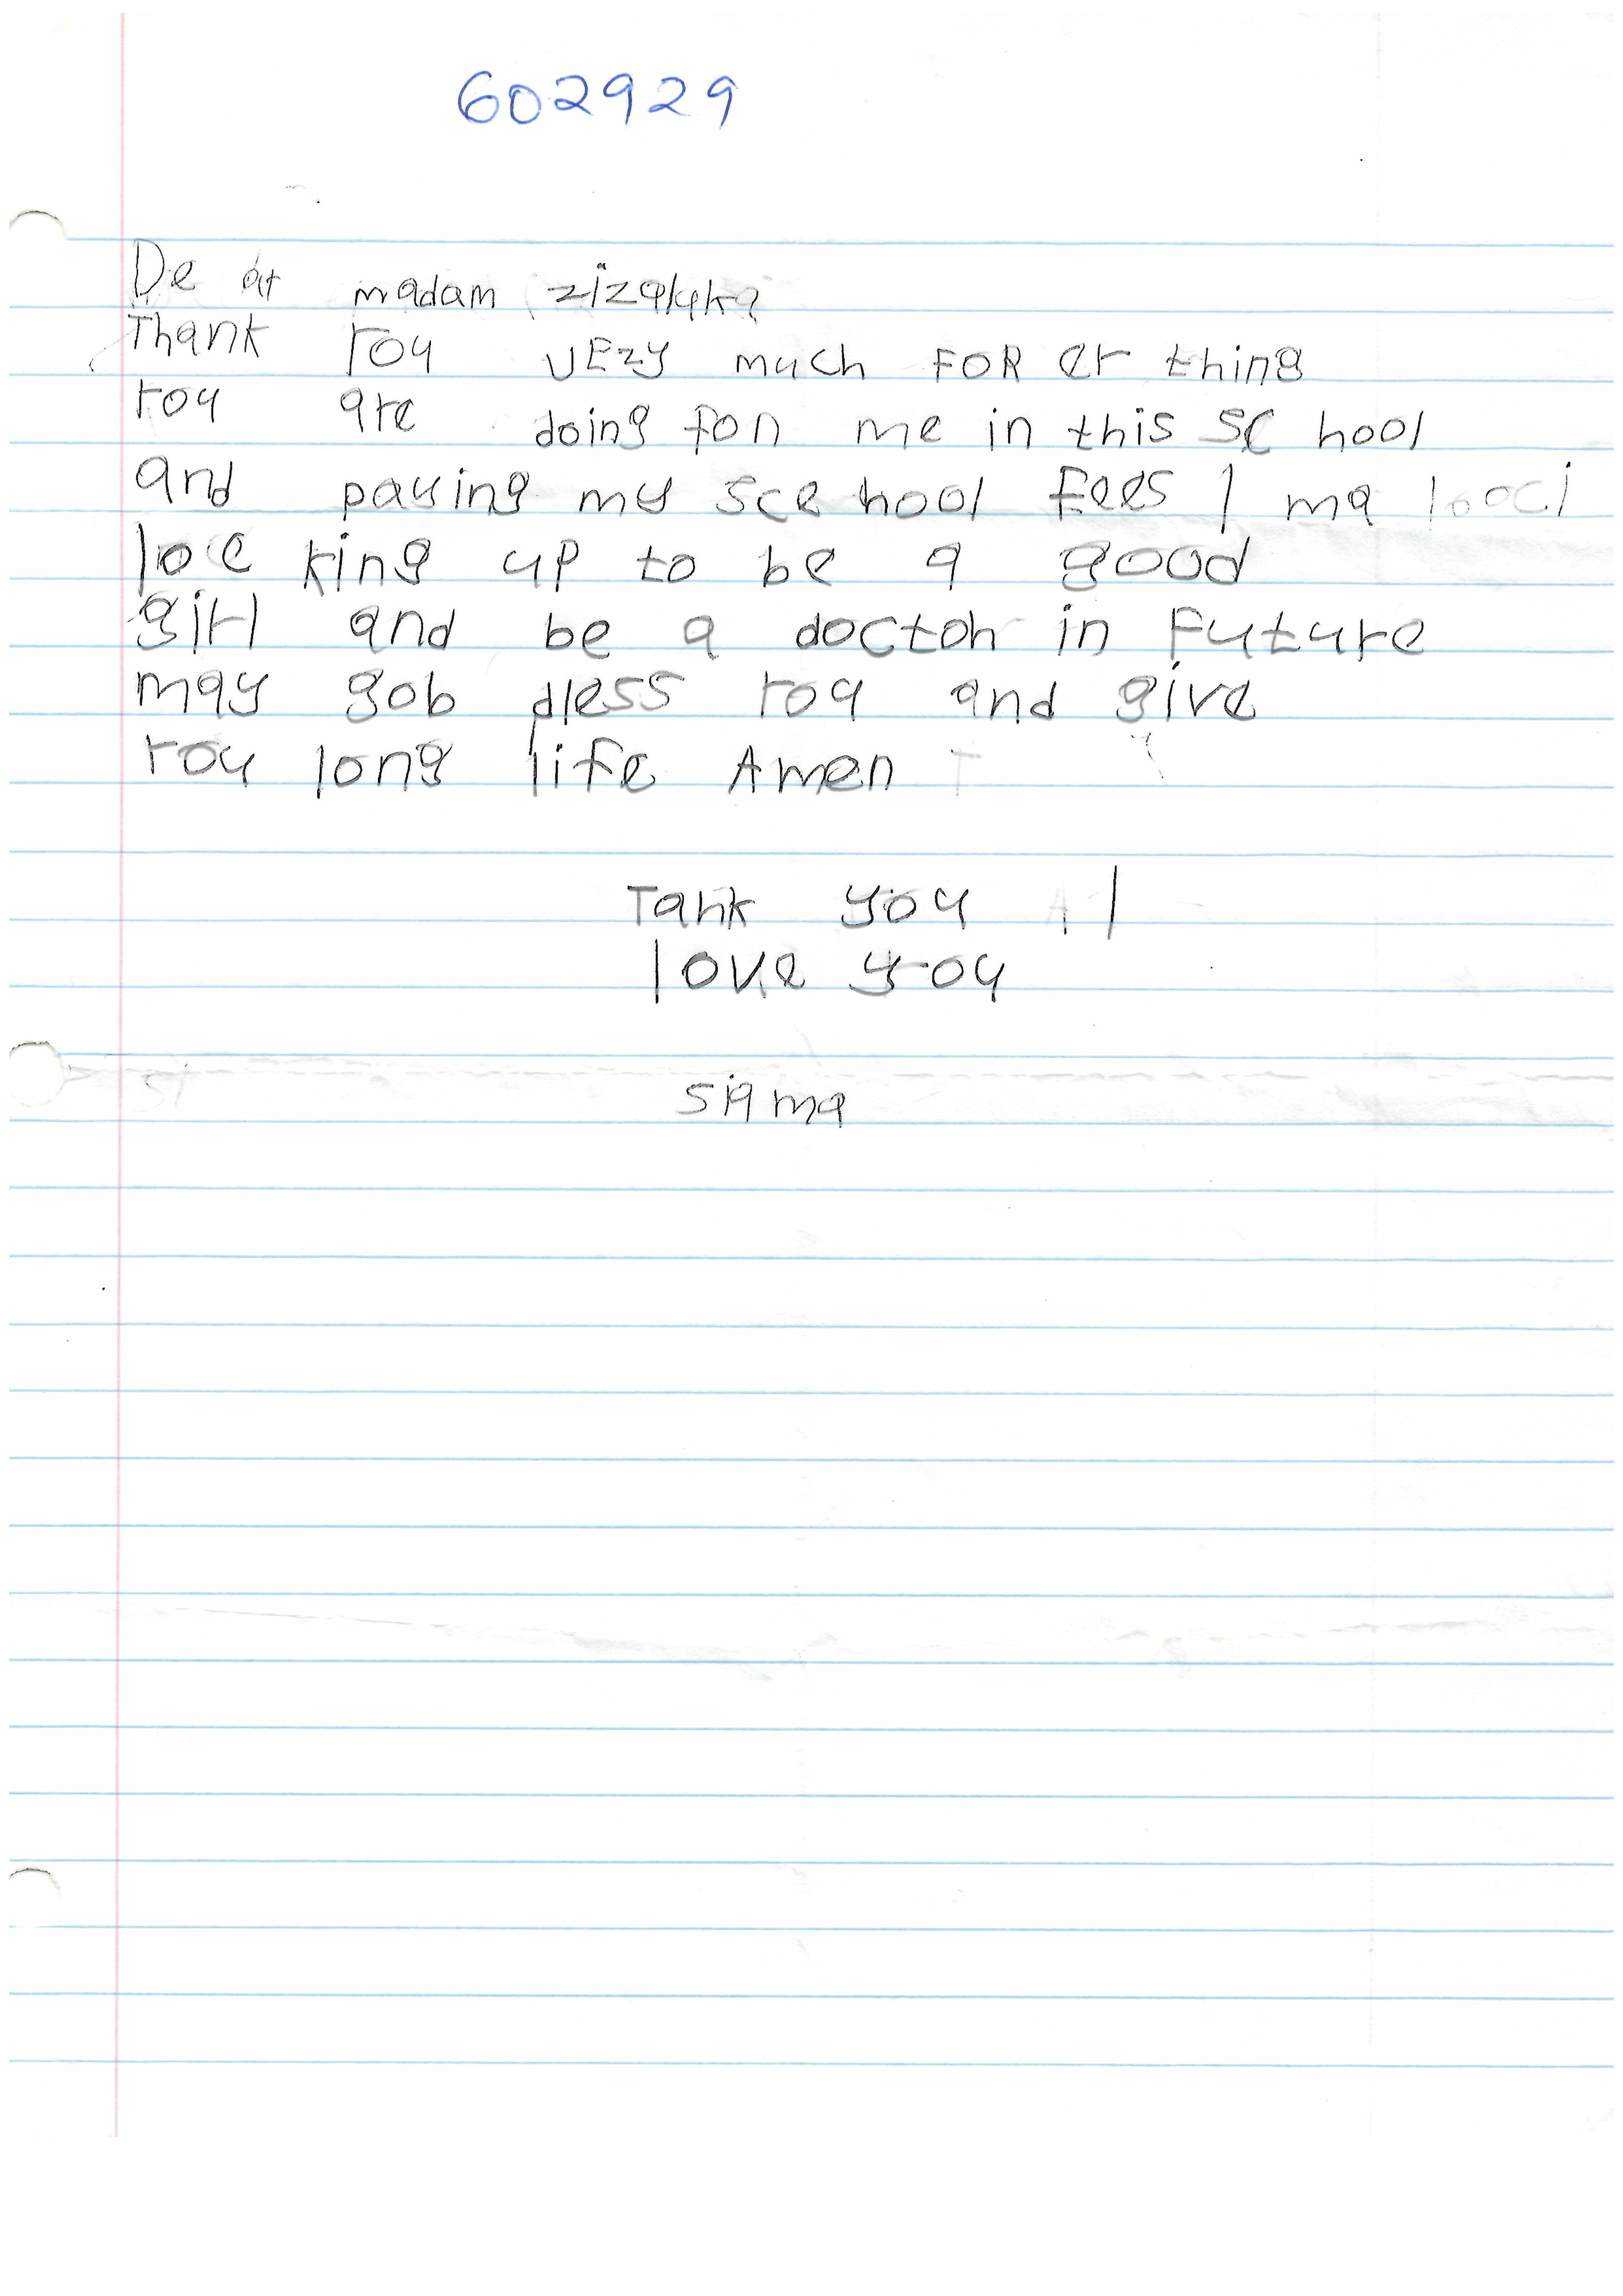 602929
De ar madam zizaluka
Thank rou vEzy much FOR er thing
rou are doing fon me in this Sc hool
and paying my sce hool fees I ma
loc king up to be a good
girl and be a doctoh in Future
may gob dless rou and give
rou long life Amen
Tank you I
love you
siama